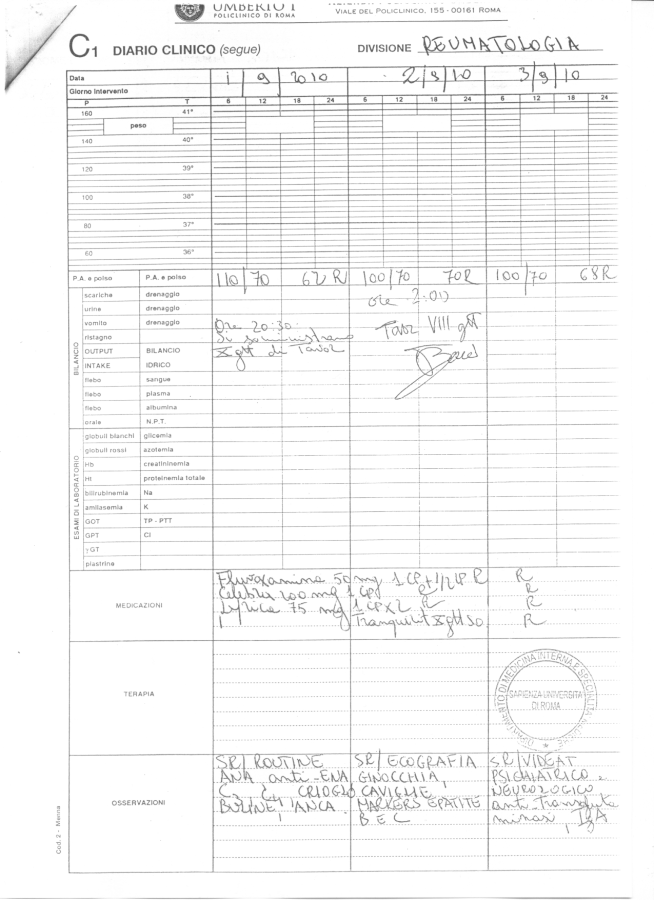 UMBERTO I
POLICLINICO DI ROMA
VIALE DEL POLICLINICO, 155 - 00161 ROMA
C1 DIARIO CLINICO (segue) DIVISIONE REUMATOLOGIA
Data 1 9 2010 2/9/10 3/9/10
Giorno Intervento
P T 6 12 18 24 6 12 18 24 6 12 18 24
160 41°
peso
140 40°
120 39°
100 38°
80 37°
60 36°
P.A. e polso P.A. e polso 110/70 62 R 100/70 70R 100/70 68R
scariche drenaggio ore 2:00
urine drenaggio
vomito drenaggio Ore 20:30 Tavor VIII gtt
ristagno Si somministrano
OUTPUT BILANCIO X gtt di Tavor
INTAKE IDRICO
flebo sangue
flebo plasma
flebo albumina
orale N.P.T.
BILANCIO
globuli bianchi glicemia
globuli rossi azotemia
Hb creatininemia
Ht proteinemia totale
bilirubinemia Na
amilasemia K
GOT TP - PTT
GPT Cl
γGT
piastrine
ESAMI DI LABORATORIO
MEDICAZIONI
Fluvoxamina 50 mg 1 cp + 1/2 cp R R
Celebrex 200 mg 1 cp R
Lyrica 75 mg 1 cp x 2 R R
Tranquirit X gtt so. R
TERAPIA
DIPARTIMENTO DI MEDICINA INTERNA E SPECIALITÀ MEDICHE
SAPIENZA UNIVERSITÀ
DI ROMA
OSSERVAZIONI
SR/ ROUTINE
ANA anti-ENA
C3 C4 CRIOGLO
BULINE, ANCA
SR/ ECOGRAFIA
GINOCCHIA,
CAVIGLIE
MARKERS EPATITE
B E C
SR/VIDEAT
PSICHIATRICO e
NEUROLOGICO
anti Transgluta
minasi, IgA
Cod. 2 -